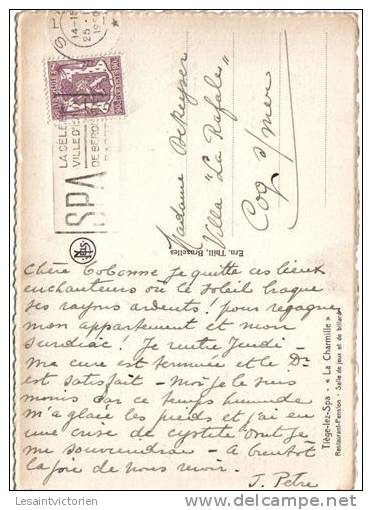 SPA
14-15
25
1950
LA CÉLÈB
VILLE D'E
DE RÉPU
SPA
BELGIE
BELGIQUE
Madame Dekeyser
Villa "La Rafale"
Coq s/mer
Ern. Thill, Bruxelles
Nels
Tiège-lez-Spa : « La Charmille »
Restaurant-Pension - Salle de jeux et de billard
Chère Cobonne Je quitte ces lieux
enchanteurs où le soleil braque
ses rayons ardents! pour regagner
mon appartement et mon
surdiac! Je rentre Jeudi -
ma cure est terminée et le Dr
est satisfait - Moi je le suis
moins car ce temps humide
m'a glacé les pieds et j'ai eu
une crise de cystite dont je
me souviendrai - A bientôt
la joie de vous revoir.
J. Petre
© http://Lesaintvictorien.delcampe.net